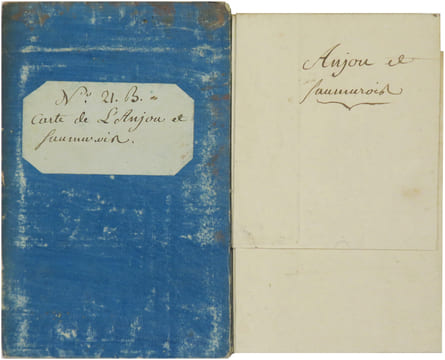 N.º 21. B. =
Carte de L'Anjou et
Saumurois.
Anjou et
Saumurois